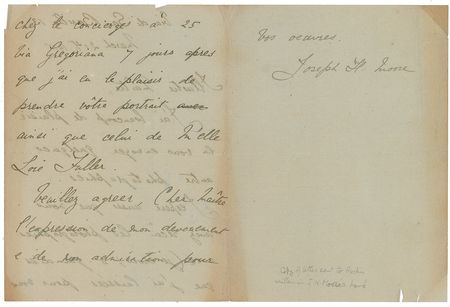 chez le concierge au 25
Via Gregoriana 7 jours apres
que j'ai eu le plaisir de
prendre vôtre portrait avec
ainsi que celui de M'elle
Loïe Fuller.
Veuillez agreer, Cher Maître
l'expression de mon devouement
e de mon admiration pour
vos oeuvres.
Joseph H. Moore
Copy of letter sent to Rodin